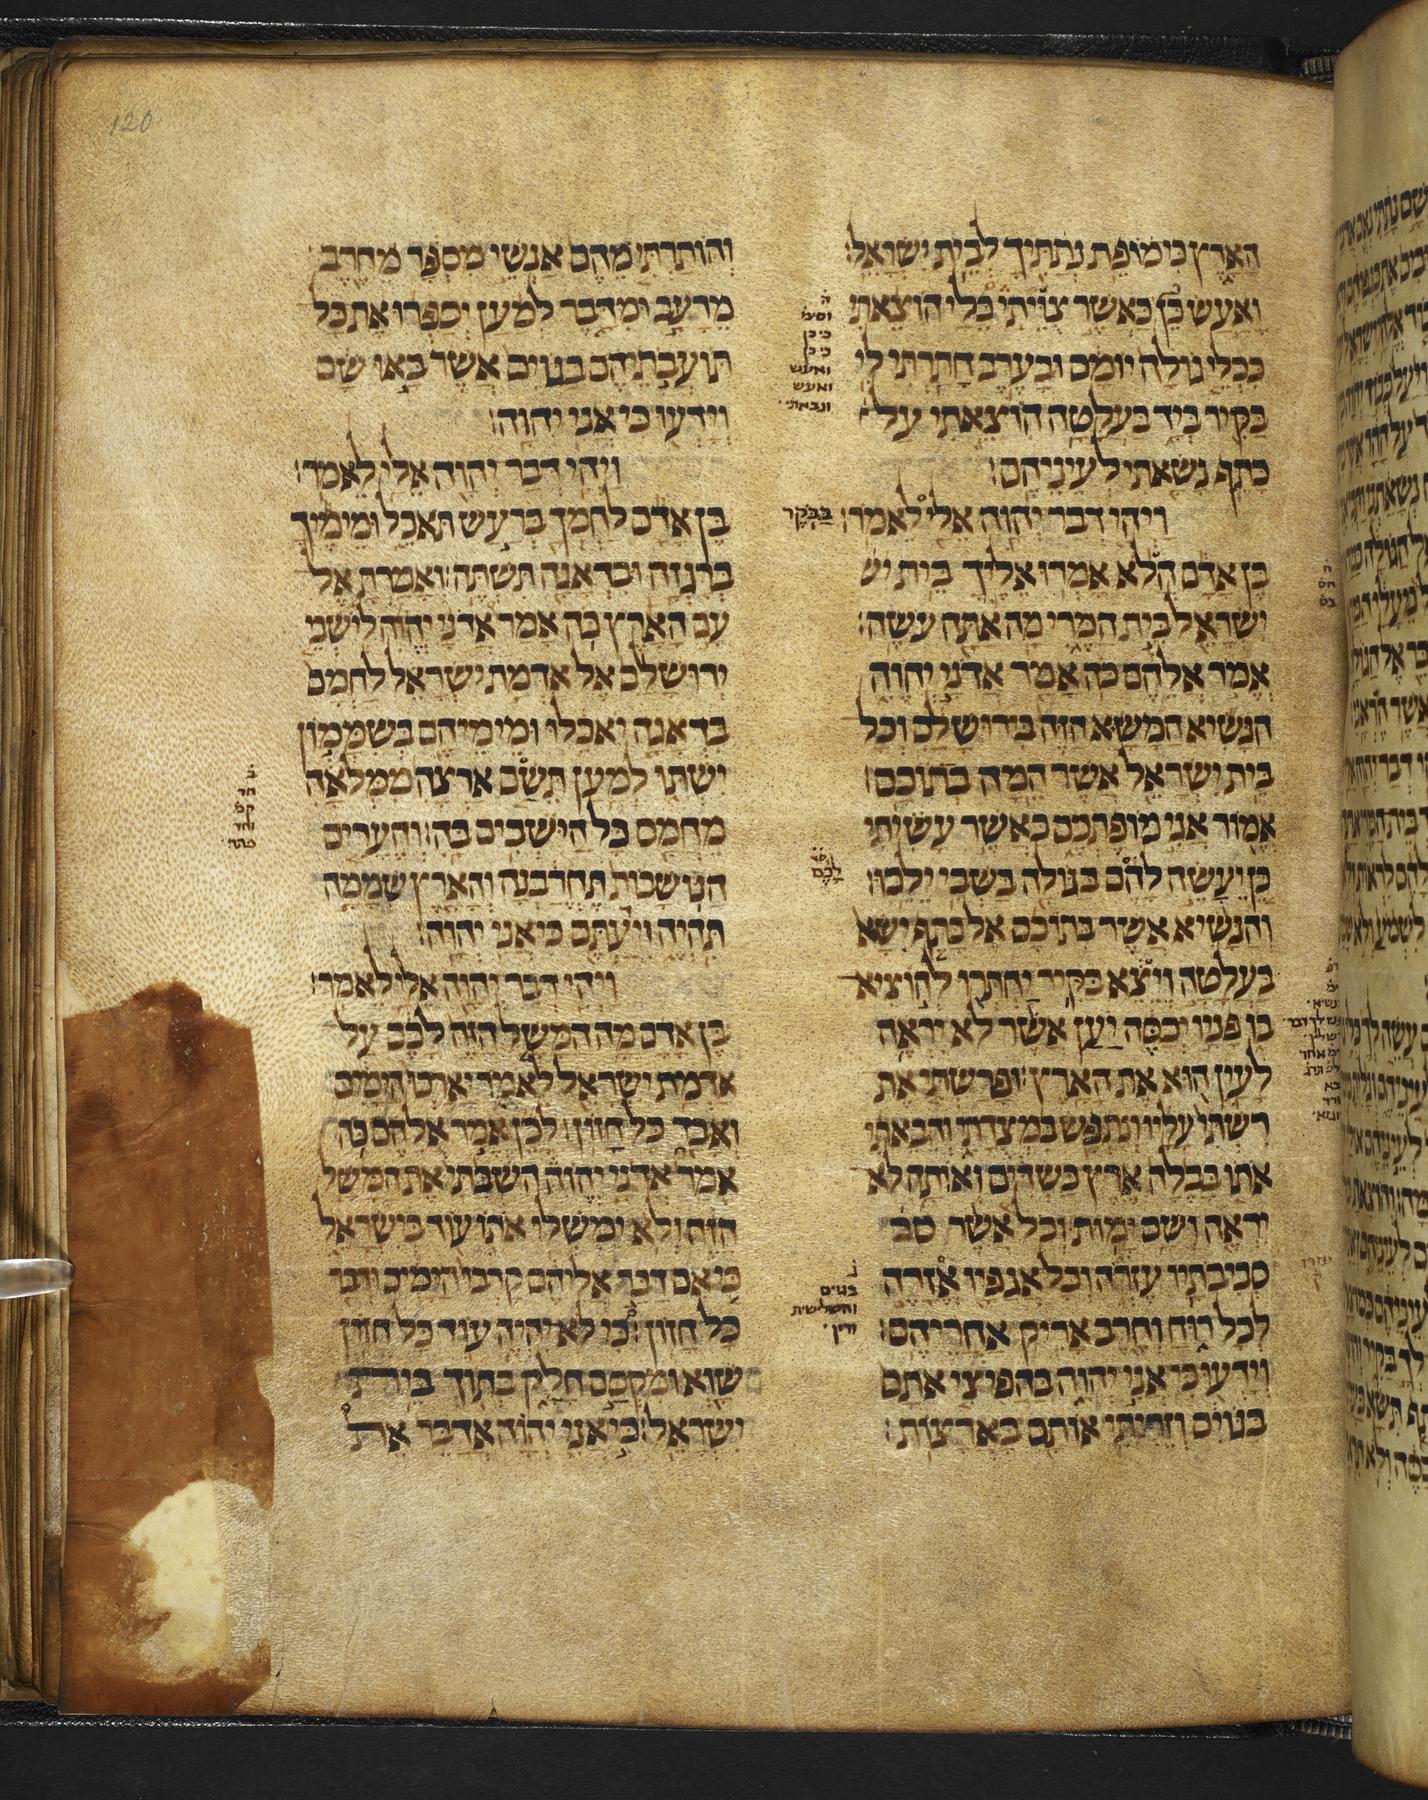 הארץ כי מופת נתתיך לבית ישראל׃
ואעש כן כאשר צויתי כלי הוצאתי
ככלי גולה יומם ובערב חתרתי לי
בקיר ביד בעלטה הוצאתי על
כתף נשאתי לעיניהם׃
ויהי דבר יהוה אלי לאמר׃ בבקר
בן אדם הלא אמרו אליך בית יש
ישראל בית המרי מה אתה עשה׃
אמר אלהם כה אמר אדני יהוה
הנשיא המשא הזה בירושלם וכל
בית ישראל אשר המה בתוכם׃
אמור אני מופתכם כאשר עשיתי
כן יעשה להם בגולה בשבי ילכו׃
והנשיא אשר בתוכם אל כתף ישא
בעלטה ויצא בקיר יחתרו להוציא
בו פניו יכסה יען אשר לא יראה
לעין הוא את הארץ׃ ופרשתי את
רשתי עליו ונתפש במצדתי והבאתי
אתו בבלה ארץ כשדים ואותה לא
יראה ושם ימות׃ וכל אשר סב
סביבתיו עזרה וכל אגפיו אזרה
לכל רוח וחרב אריק אחריהם׃
וידעו כי אני יהוה בהפיצי אתם
בגוים וזריתי אותם בארצות׃
והותרתי מהם אנשי מספר מחרב
מרעב ומדבר למען יספרו את כל
תועבתיהם בגוים אשר באו שם
וידעו כי אני יהוה׃
ויהי דבר יהוה אלי לאמר׃
בן אדם לחמך ברעש תאכל ומימיך
ברגזה ובדאגה תשתה׃ ואמרת אל
עם הארץ כה אמר אדני יהוה לישבי
ירושלם אל אדמת ישראל לחמם
בדאגה יאכלו ומימיהם בשממון
ישתו למען תשם ארצה ממלאה
מחמס כל הישבים בה׃ והערים
הנושבות תחרבנה והארץ שממה
תהיה וידעתם כי אני יהוה׃
ויהי דבר יהוה אלי לאמר׃
בן אדם מה המשל הזה לכם על
אדמת ישראל לאמר יארכו הימים
ואבד כל חזון׃ לכן אמר אלהם כה
אמר אדני יהוה השבתי את המשל
הזה ולא ימשלו אתו עוד בישראל
כי אם דבר אליהם קרבו הימים ודבר
כל חזון׃ כי לא יהיה עוד כל חזון
שוא ומקסם חלק בתוך בית
ישראל׃ כי אני יהוה אדבר את
לכם
120